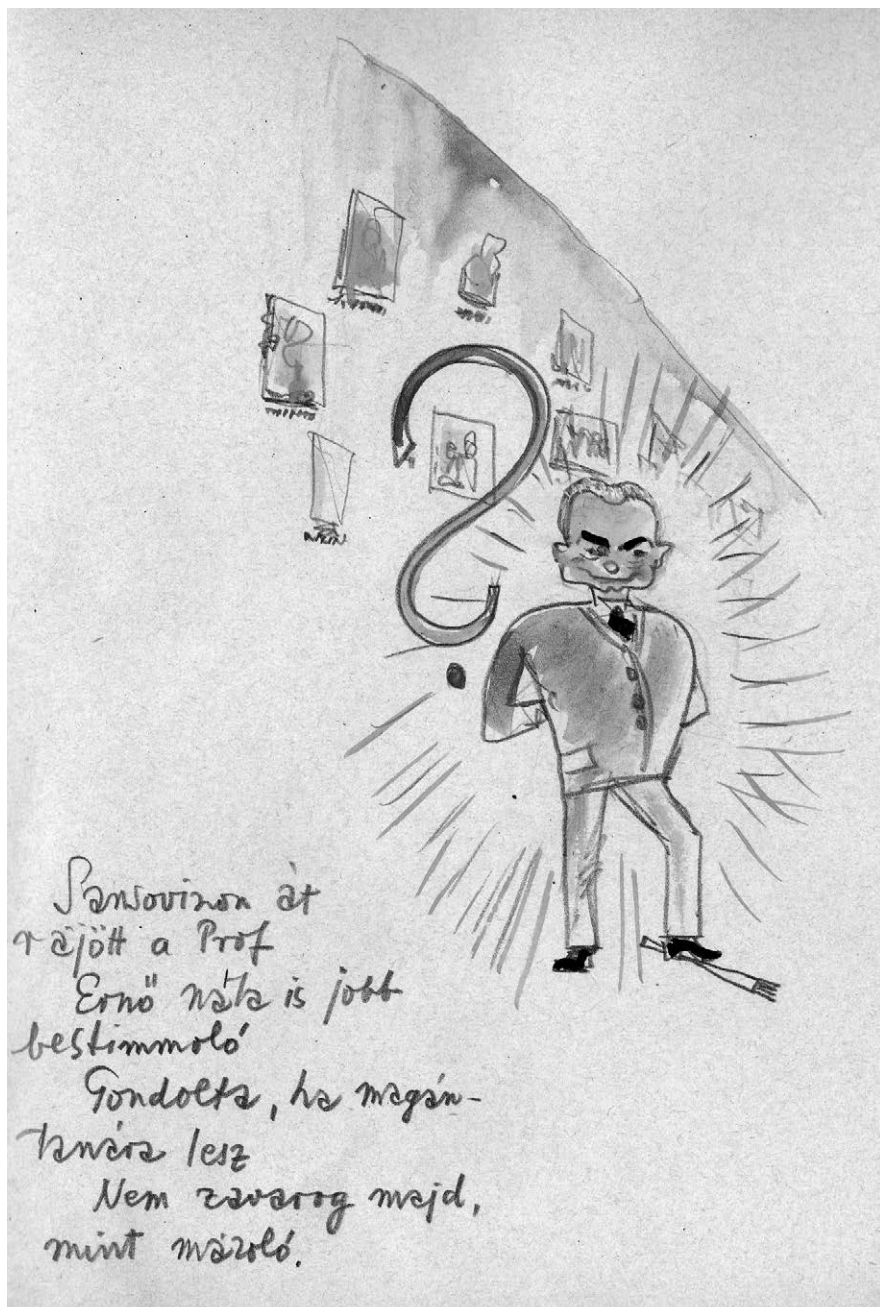 Sansovinon át
rájött a Prof
Ernő nála is jobb
bestimmoló
Gondolta, ha magán-
tanára lesz
Nem zavarog majd,
mint mázoló.